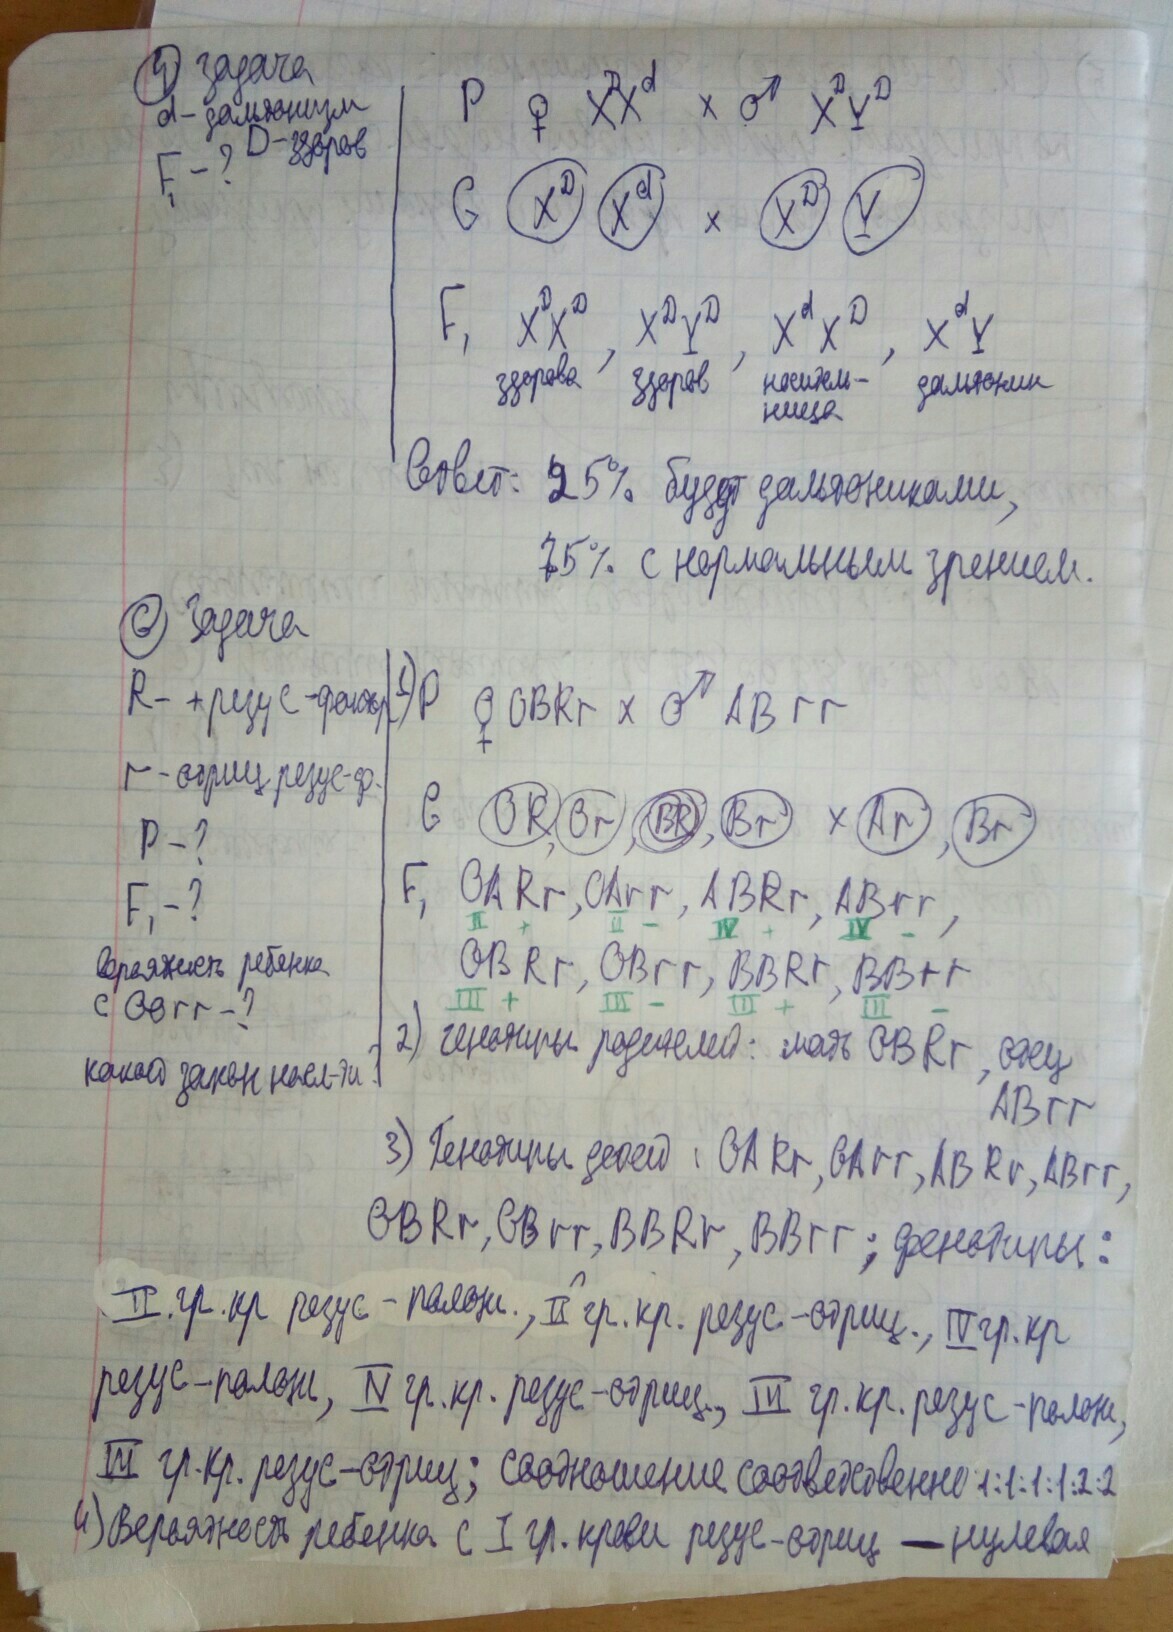 4) Задача
d - дальтонизм
D - здоров
F₁ - ?
P ♀ XᴰXᵈ × ♂ XᴰYᴰ
G Xᴰ Xᵈ × Xᴰ Y
F₁ XᴰXᴰ, XᴰYᴰ, XᵈXᴰ, XᵈY
здорова здоров носитель- дальтоник
ница
Ответ: 25% будут дальтониками,
75% с нормальным зрением.
6) Задача
R - + резус-фактор
r - отриц резус-ф.
P - ?
F₁ - ?
Вероятность ребенка
с OOrr - ?
какой закон насл-ти?
1) P ♀ OBRr × ♂ ABrr
G OR, Or, BR, Br × Ar, Br
F₁ OARr, OArr, ABRr, ABrr,
II + II - IV + IV -
OBRr, OBrr, BBRr, BBrr
III + III - III + III -
2) генотипы родителей: мать OBRr, отец
ABrr
3) Генотипы детей: OARr, OArr, ABRr, ABrr,
OBRr, OBrr, BBRr, BBrr; фенотипы:
II гр. кр резус - полож., II гр. кр. резус-отриц., IV гр. кр
резус-полож, IV гр. кр. резус-отриц., III гр. кр. резус-полож,
III гр. кр. резус-отриц; соотношение соответственно 1:1:1:1:2:2
4) Вероятность ребенка с I гр. крови резус-отриц — нулевая